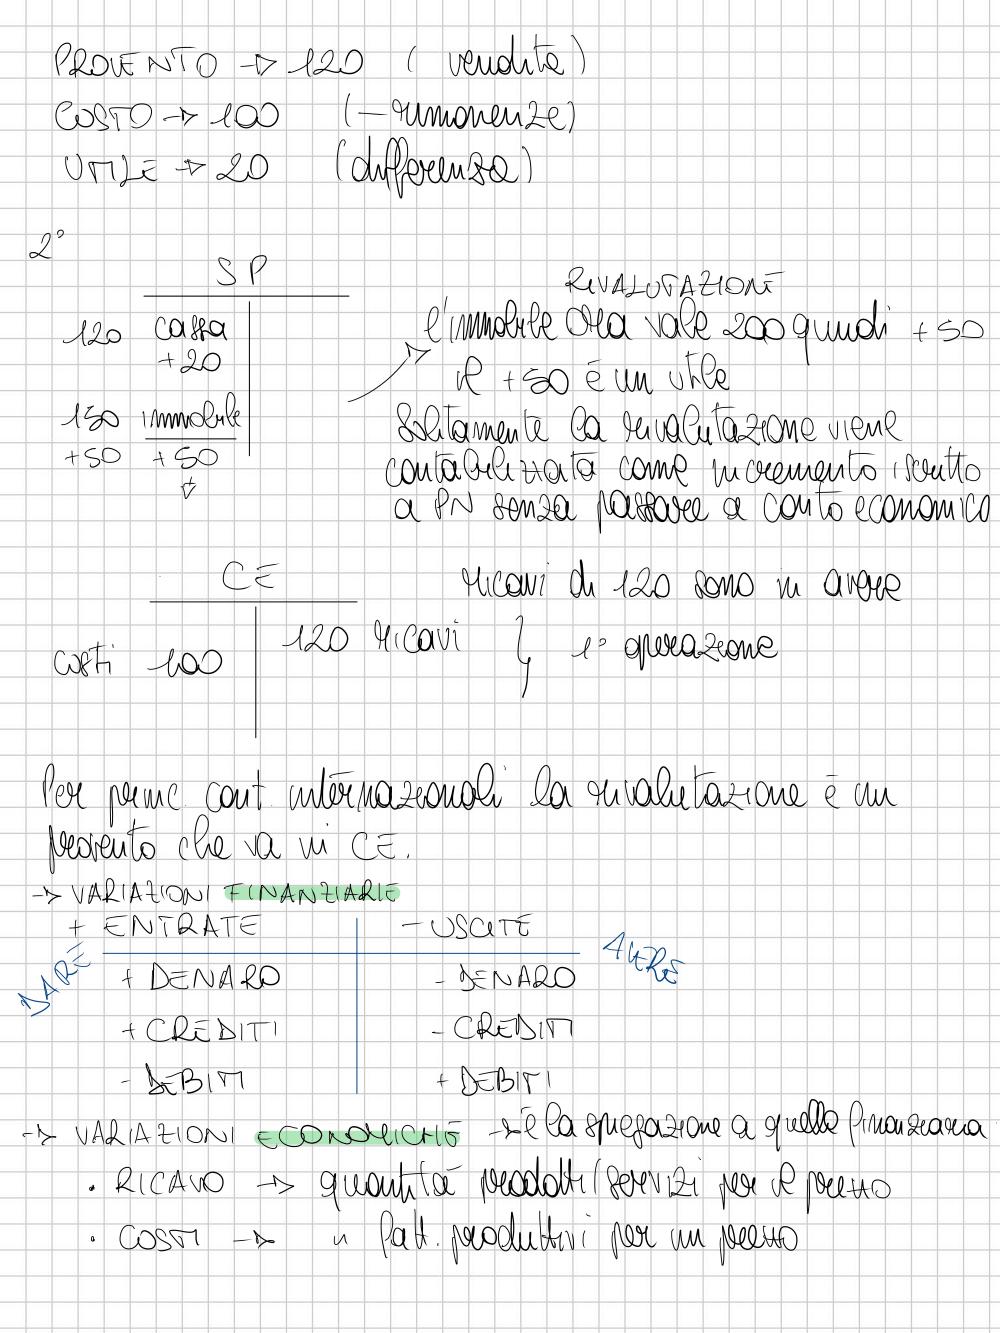 PROVENTO -> 120 (vendita)
COSTO -> 100 (-rimanenze)
UTILE -> 20 (differenza)
2°
SP
120 cassa
+20
150 immobile
+50 +50
RIVALUTAZIONE
l'immobile ora vale 200 quindi +50
il +50 è un utile
Solitamente la rivalutazione viene
contabilizzata come incremento iscritto
a PN senza passare a conto economico
CE
costi 100
120 ricavi
ricavi di 120 sono in avere
1° operazione
Per princ. cont. internazionali la rivalutazione è un
provento che va in CE.
-> VARIAZIONI FINANZIARIE
+ ENTRATE - USCITE
DARE AVERE
+ DENARO - DENARO
+ CREDITI - CREDITI
- DEBITI + DEBITI
-> VARIAZIONI ECONOMICHE -> è la spiegazione a quella finanziaria
• RICAVO -> quantità prodotti/servizi per il prezzo
• COSTI -> " fatt. produttivi per un prezzo